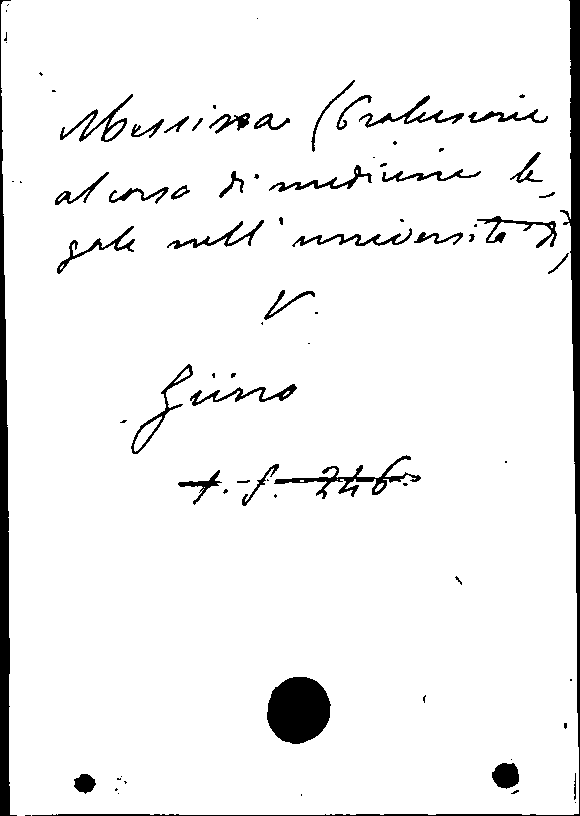 Messina (Prolusione
al corso di medicina le-
gale nell' università di)
V.
Ziino
f. f. 246.